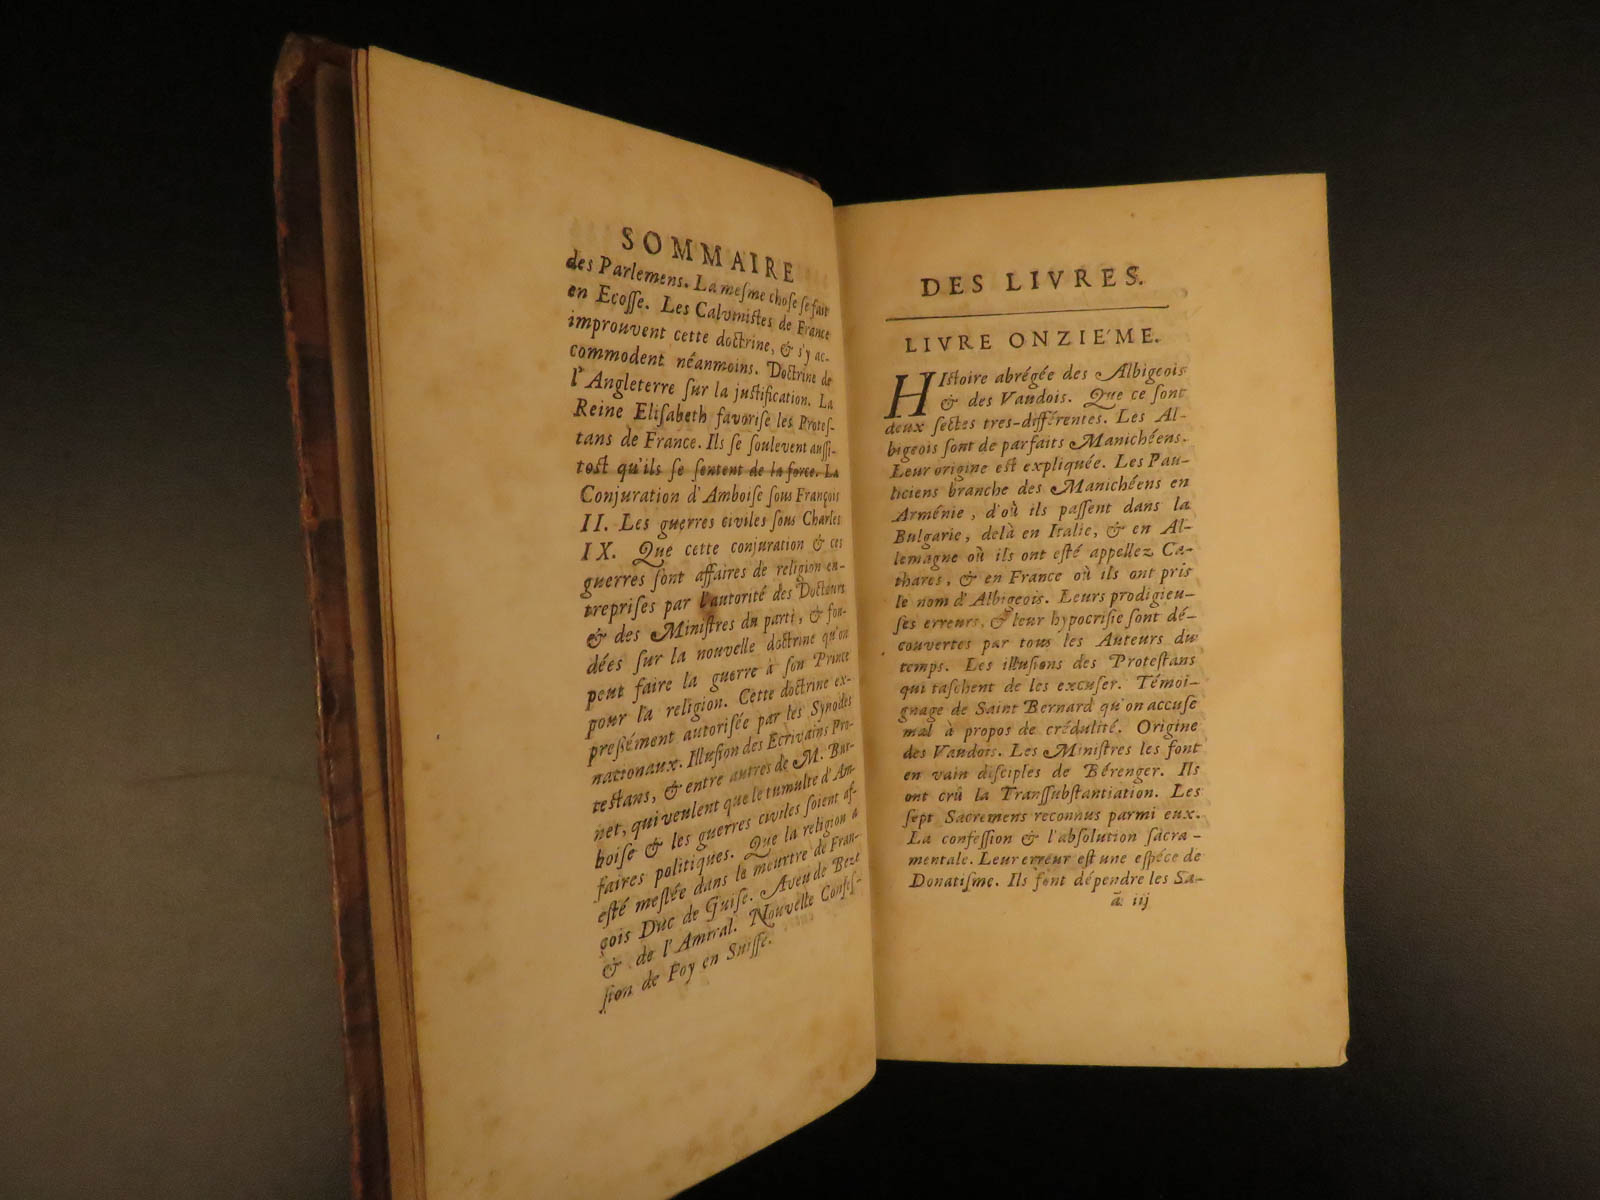 SOMMAIRE
des Parlemens. La mesme chose se fait
en Ecosse. Les Calvinistes de France
improuvent cette doctrine, & s'y ac-
commodent néanmoins. Doctrine de
l'Angleterre sur la justification. La
Reine Elisabeth favorise les Protes-
tans de France. Ils se soulevent aussi-
tost qu'ils se sentent de la force. La
Conjuration d'Amboise sous François
II. Les guerres civiles sous Charles
IX. Que cette conjuration & ces
guerres sont affaires de religion en-
treprises par l'autorité des Docteurs
& des Ministres du parti, & fon-
dées sur la nouvelle doctrine qu'on
peut faire la guerre à son Prince
pour la religion. Cette doctrine ex-
pressément autorisée par les Synodes
nationaux. Illusion des Ecrivains Pro-
testans, & entre autres de M. Bur-
net, qui veulent que le tumulte d'Am-
boise & les guerres civiles soient af-
faires politiques. Que la religion a
esté meslée dans le meurtre de Fran-
çois Duc de Guise. Aveu de Beze
& de l'Amiral. Nouvelle Confes-
sion de Foy en Suisse.
DES LIVRES.
LIVRE ONZIE'ME.
HIstoire abrégée des Albigeois
& des Vaudois. Que ce sont
deux sectes tres-différentes. Les Al-
bigeois sont de parfaits Manichéens.
Leur origine est expliquée. Les Pau-
liciens branche des Manichéens en
Arménie, d'où ils passent dans la
Bulgarie, delà en Italie, & en Al-
lemagne où ils ont esté appellez Ca-
thares, & en France où ils ont pris
le nom d'Albigeois. Leurs prodigieu-
ses erreurs, & leur hypocrisie sont dé-
couvertes par tous les Auteurs du
temps. Les illusions des Protestans
qui taschent de les excuser. Témoi-
gnage de Saint Bernard qu'on accuse
mal à propos de crédulité. Origine
des Vaudois. Les Ministres les font
en vain disciples de Bérenger. Ils
ont crû la Transsubstantiation. Les
sept Sacremens reconnus parmi eux.
La confession & l'absolution sacra-
mentale. Leur erreur est une espéce de
Donatisme. Ils font dépendre les Sa-
ã iij